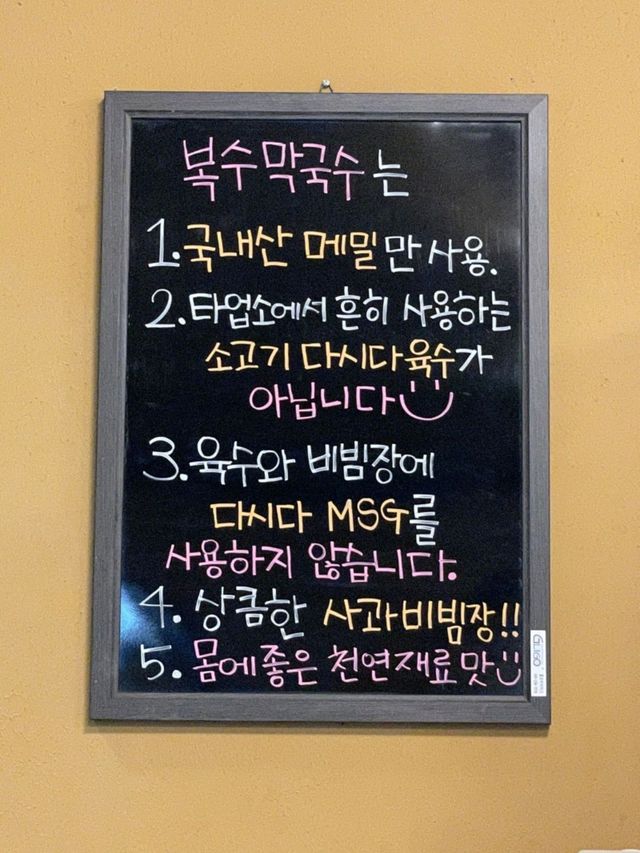 복수막국수는
1. 국내산 메밀만 사용.
2. 타업소에서 흔히 사용하는
소고기 다시다육수가
아닙니다
3. 육수와 비빔장에
다시다 MSG를
사용하지 않습니다.
4. 상큼한 사과비빔장!!
5. 몸에좋은 천연재료맛